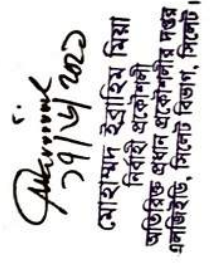 মোহাম্মদ ইব্রাহিম মিয়া
নির্বাহী প্রকৌশলী
অতিরিক্ত প্রধান প্রকৌশলীর দপ্তর
এলজিইডি, সিলেট বিভাগ, সিলেট।